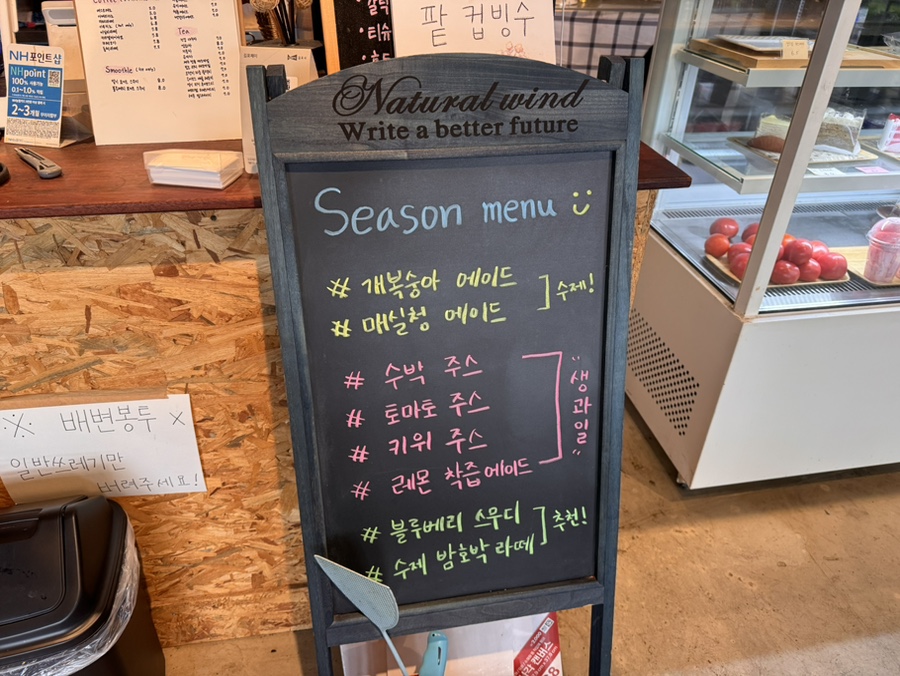 팥 컵빙수
NH포인트샵
NHpoint
100% 사용가능
0.1~1.0% 적립
2~3개월 무이자할부
Tea
Smoothie
Natural wind
Write a better future
Season menu
# 개복숭아 에이드
# 매실청 에이드
수제!
# 수박 주스
# 토마토 주스
# 키위 주스
# 레몬 착즙에이드
생과일
# 블루베리 스무디
# 수제 밤호박 라떼
추천!
※ 배변봉투 X
일반쓰레기만
버려주세요!